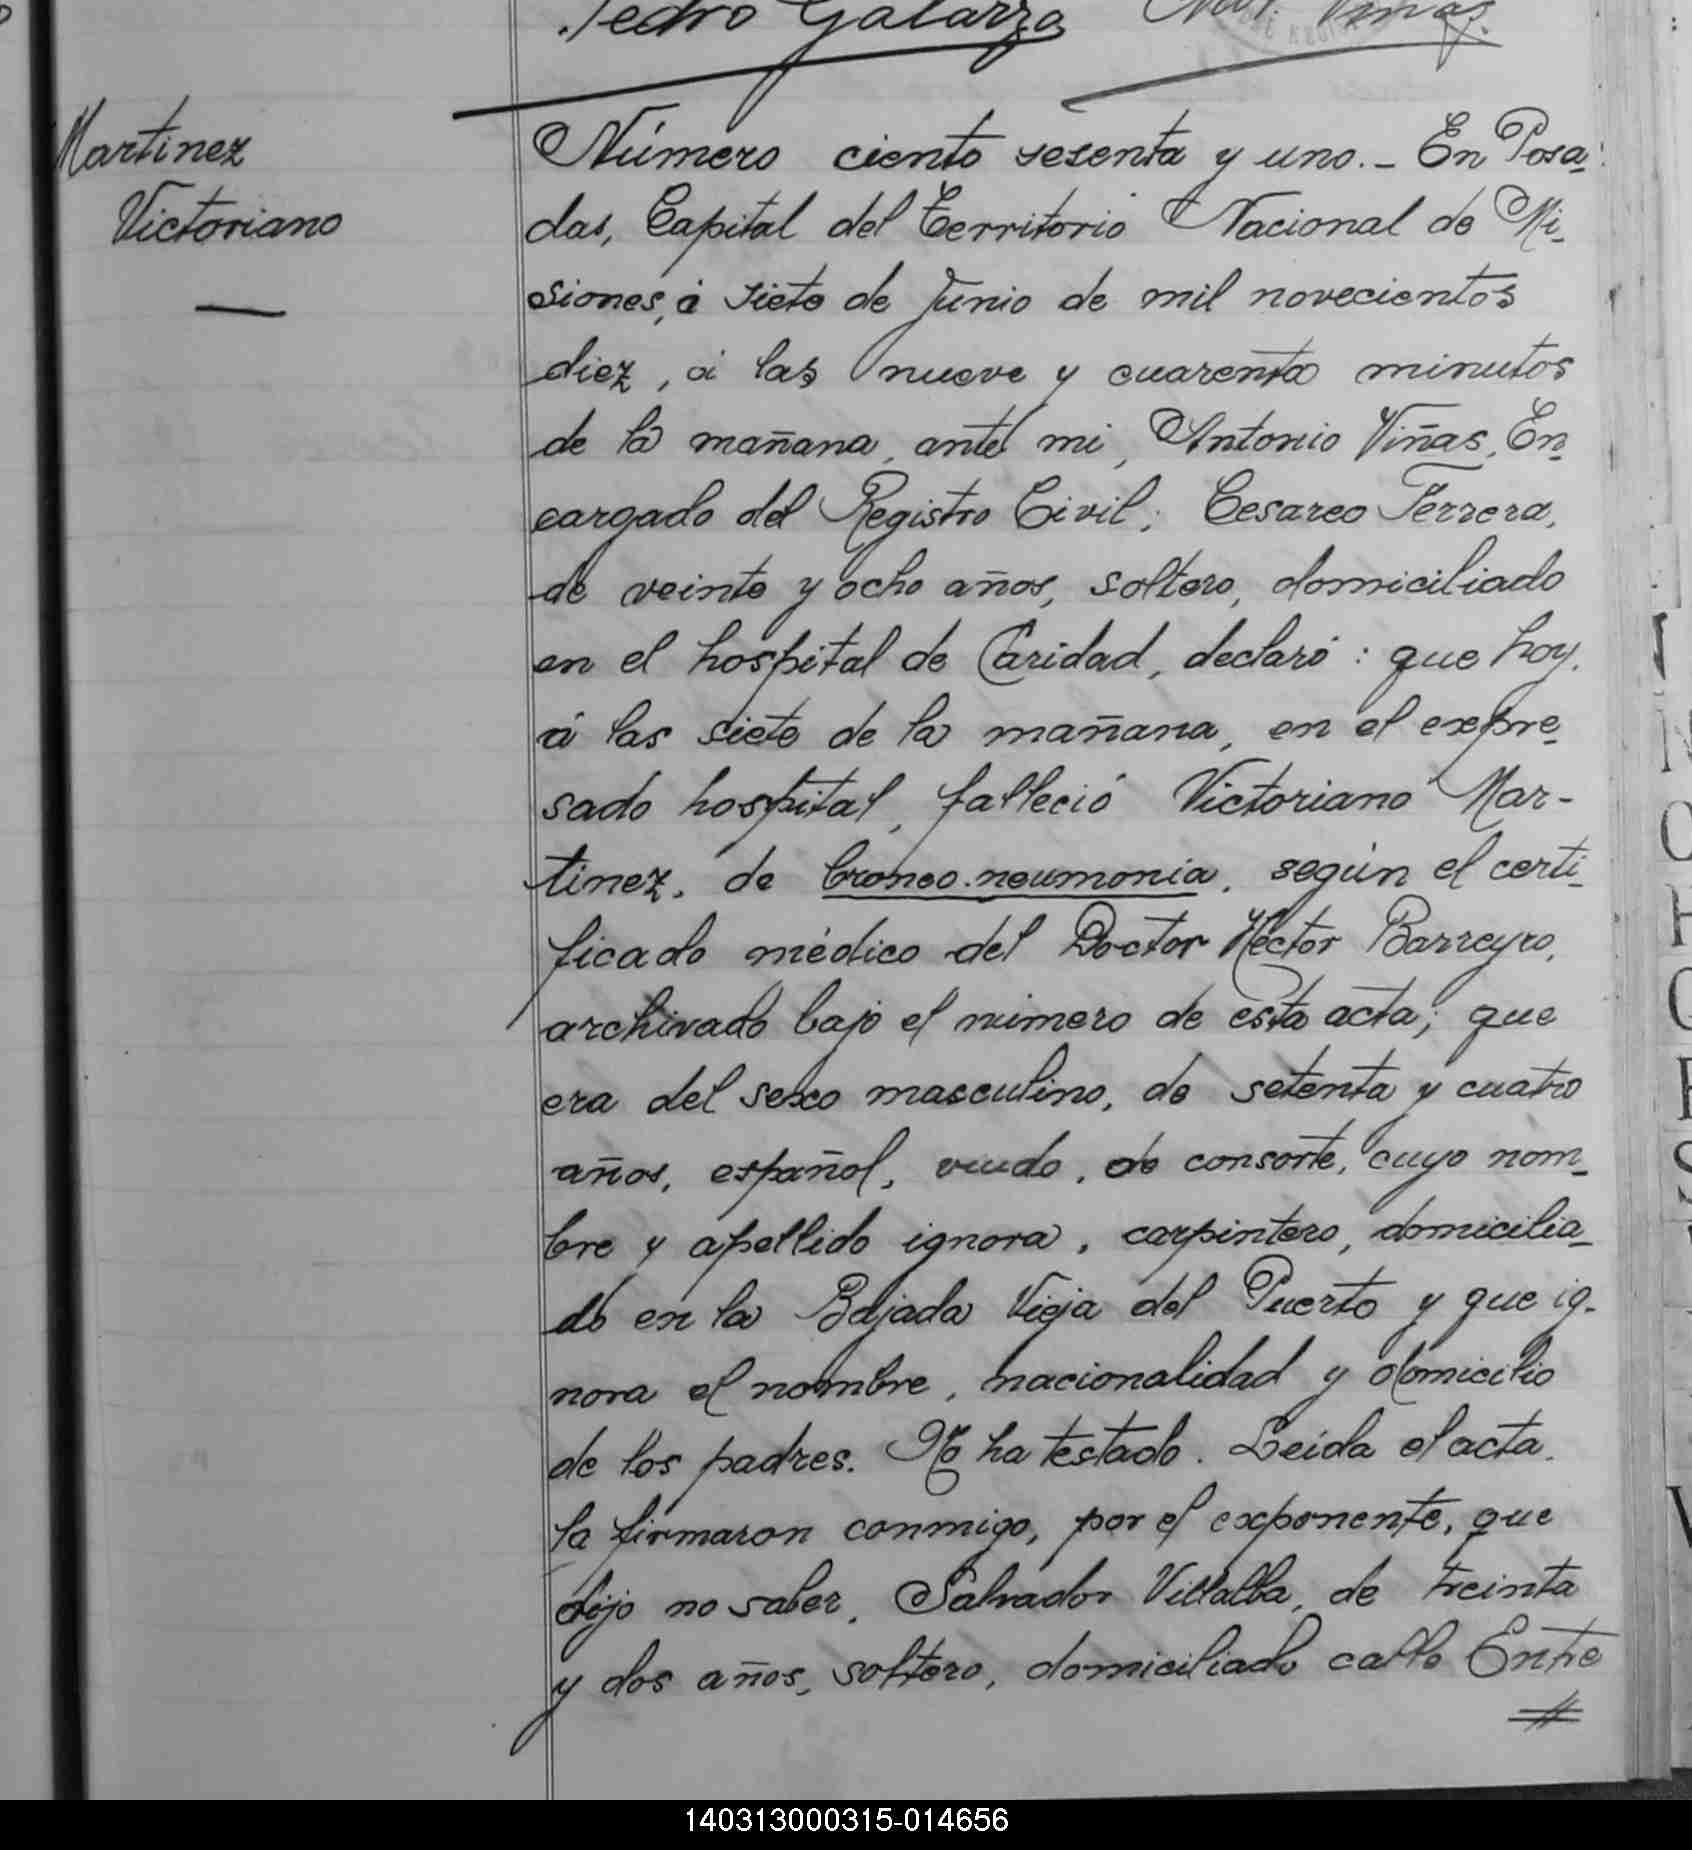 Pedro Galarza
Martinez
Victoriano
Número ciento sesenta y uno.- En Posa-
das, Capital del Territorio Nacional de Mi-
siones, á siete de Junio de mil novecientos
diez, á las nueve y cuarenta minutos
de la mañana, ante mi, Antonio Viñas, En-
cargado del Registro Civil; Cesareo Ferrera,
de veinte y ocho años, soltero, domiciliado
en el hospital de Caridad, declaró: que hoy,
á las siete de la mañana, en el expre-
sado hospital, falleció Victoriano Mar-
tinez, de bronco-neumonia, según el certi-
ficado médico del Doctor Héctor Barreyro,
archivado bajo el número de esta acta; que
era del sexo masculino, de setenta y cuatro
años, español, viudo, de consorte, cuyo nom-
bre y apellido ignora, carpintero, domicilia-
do en la Bajada Vieja del Puerto y que ig-
nora el nombre, nacionalidad y domicilio
de los padres. No ha testado. Leida el acta,
la firmaron conmigo, por el exponente, que
dijo no saber, Salvador Villalba, de treinta
y dos años, soltero, domiciliado calle Entre
140313000315-014656